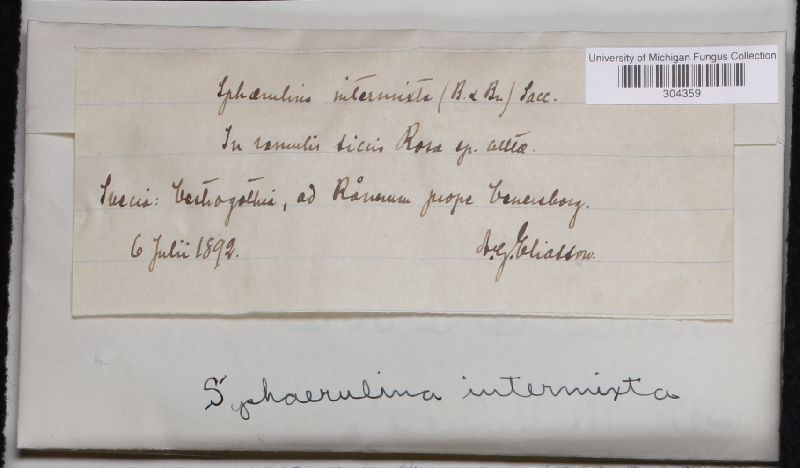 University of Michigan Fungus Collection
304359
Sphærulina intermixta (B. & Br.) Sacc.
In ramulis siccis Rosæ sp. cultæ.
Suecia: Vestrogothia, ad Rånnum prope Venersborg.
6 Julii 1892.
A. G. Eliasson.
Sphaerulina intermixta